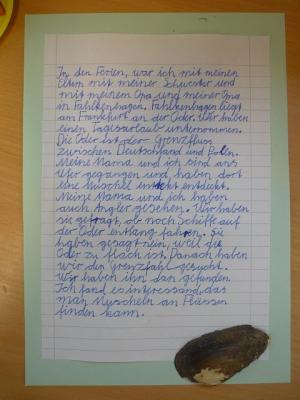 In den Ferien, war ich mit meinen
Eltern mit meiner Schwester und
mit meinem Opa und meiner Oma
in Falkenhagen. Falkenhagen liegt
am Frankfurt an der Oder. Wir haben
einen Tagesurlaub unternommen.
Die Oder ist der Grenzfluss
zwischen Deutschland und Polen.
Meine Mama und ich sind ans
Ufer gegangen und haben dort
eine Muschel entdeckt.
Meine Mama und ich haben
auch Angler gesehen. Wir haben
sie gefragt, ob noch Schiff auf
der Oder entlang fahren. Sie
haben gesagt nein, weil die
Oder zu flach ist. Danach haben
wir den Grenzpfahl gesucht.
Wir haben ihn dan gefunden.
Ich fand es interessand, das
man Muscheln an Flüssen
finden kann.